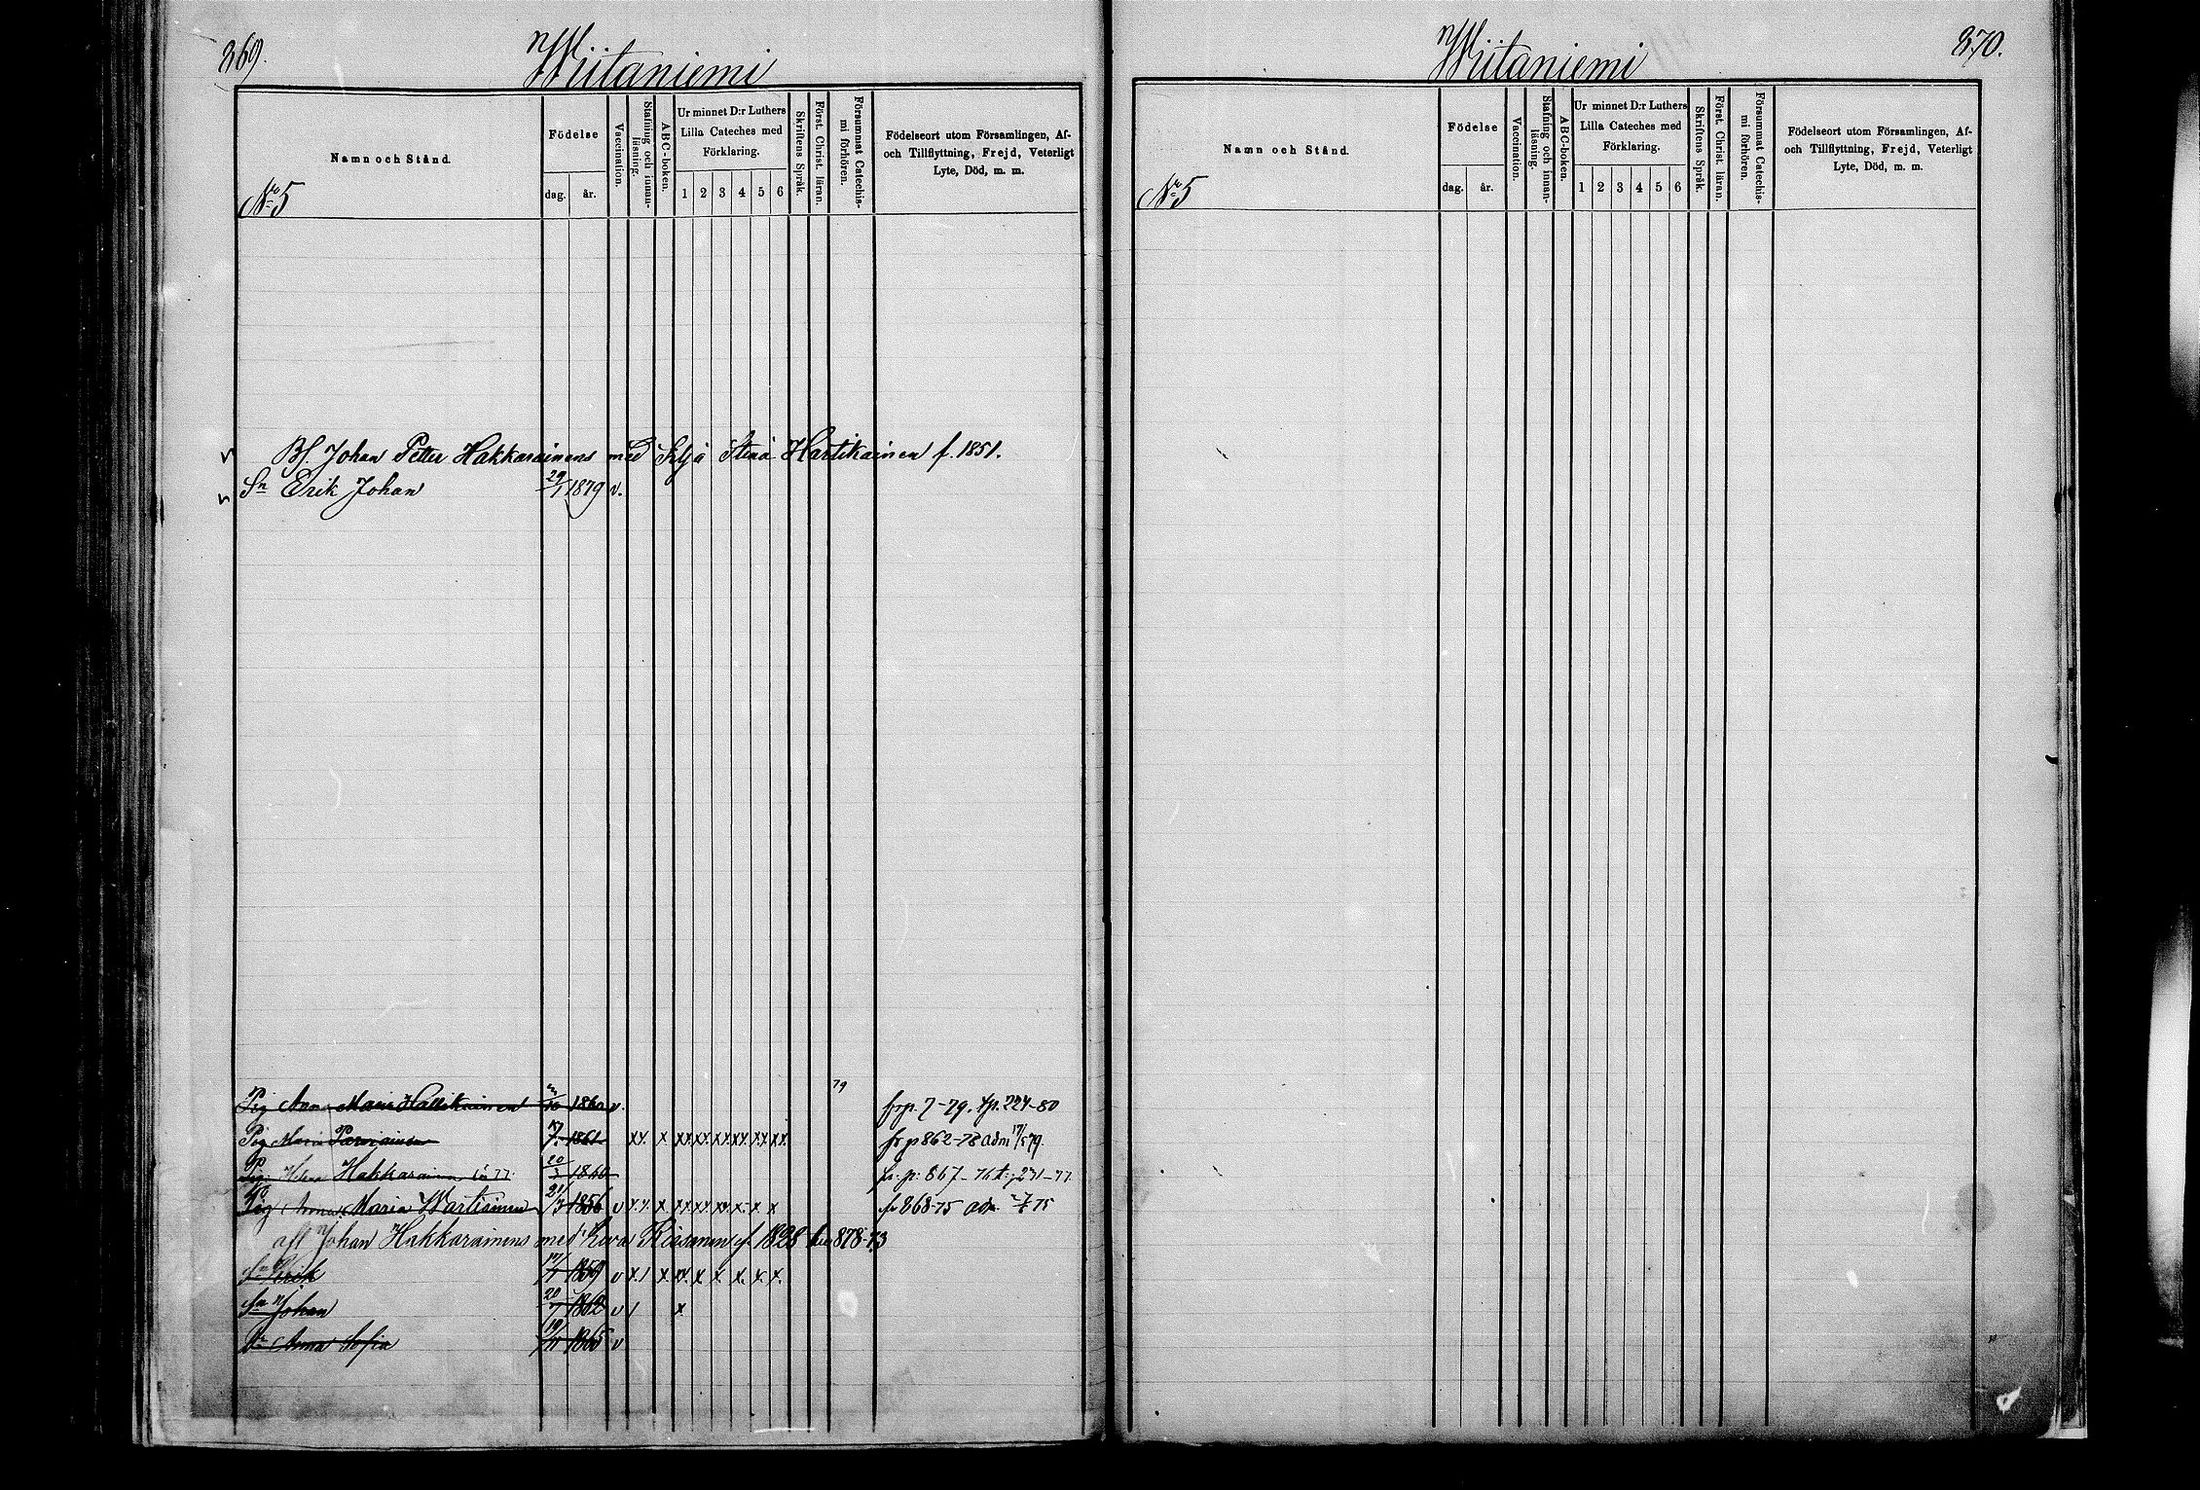 869.
Wiitaniemi
Namn och Stånd.
Födelse
dag.
år.
Vaccination.
Stafning och innan-
läsning.
ABC-boken.
Ur minnet D:r Luthers
Lilla Cateches med
Förklaring.
1 2 3 4 5 6
Skriftens Språk.
Först. Christ. läran.
Försummat Catechis-
mi förhören.
Födelseort utom Församlingen, Af-
och Tillflyttning, Frejd, Veterligt
Lyte, Död, m. m.
No 5
Bf Johan Petter Hakkarainens med Stina Hartikainen f. 1851.
Sn Erik Johan 29/1 1879 v.
79
Pig Anna Maria 1860 v. frp. 7-79. tp. 224-80
Pig Maria Parviainen 1861 xx x xx xx xx xx xx xx fr p 862-78 adm 17/5 79
Pig Helena Hakkarainen 20/3 1860 fr. p: 867-76 t. p 231-77
Pig Anna Maria Wartiainen 21/3 1856 v xx x xx xx xx x x x fr 868-75 adm 75
afl Johan Hakkarainens med Eeva Kissanen f. 1828 878-73
Sn Erik 1859 v x x xx x x x x x
Sn Johan 20/7 1862 v x
Dr Anna Sofia 19/11 1865 v
Wiitaniemi
870.
Namn och Stånd.
Födelse
dag.
år.
Vaccination.
Stafning och innan-
läsning.
ABC-boken.
Ur minnet D:r Luthers
Lilla Cateches med
Förklaring.
1 2 3 4 5 6
Skriftens Språk.
Först. Christ. läran.
Försummat Catechis-
mi förhören.
Födelseort utom Församlingen, Af-
och Tillflyttning, Frejd, Veterligt
Lyte, Död, m. m.
No 5